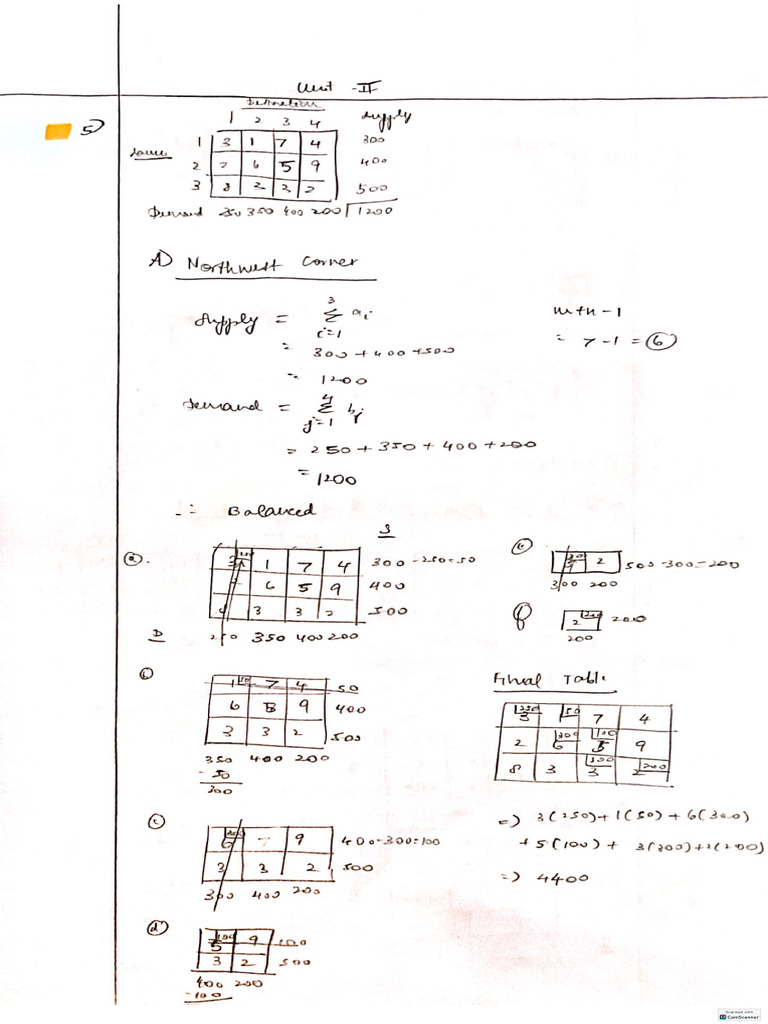 Unit - II
Destination
1 2 3 4 Supply
5)
1 3 1 7 4 300
Source
2 2 6 5 9 400
3 8 3 3 2 500
Demand 250 350 400 200 1200
A) Northwest Corner
Supply = 3 Σ i=1 ai
= 300 + 400 + 500
= 1200
m+n-1
= 7-1 = 6
Demand = 4 Σ j=1 bj
= 250 + 350 + 400 + 200
= 1200
∴ Balanced
S
a) 3 250 1 7 4 300 - 250 = 50
6 5 9 400
3 3 2 500
D 250 350 400 200
b) 1 50 7 4 50
6 5 9 400
3 3 2 500
350 400 200
- 50
300
c) 6 300 9 400-300=100
3 3 2 500
300 400 200
d) 5 100 9 100
3 2 500
400 200
-100
e) 3 300 2 500-300=200
300 200
f) 2 200 200
200
Final Table
3 250 1 50 7 4
2 6 300 5 100 9
8 3 3 300 2 200
=) 3(250)+1(50)+6(300)
+5(100)+ 3(300)+2(200)
=) 4400
Scanned with
CamScanner